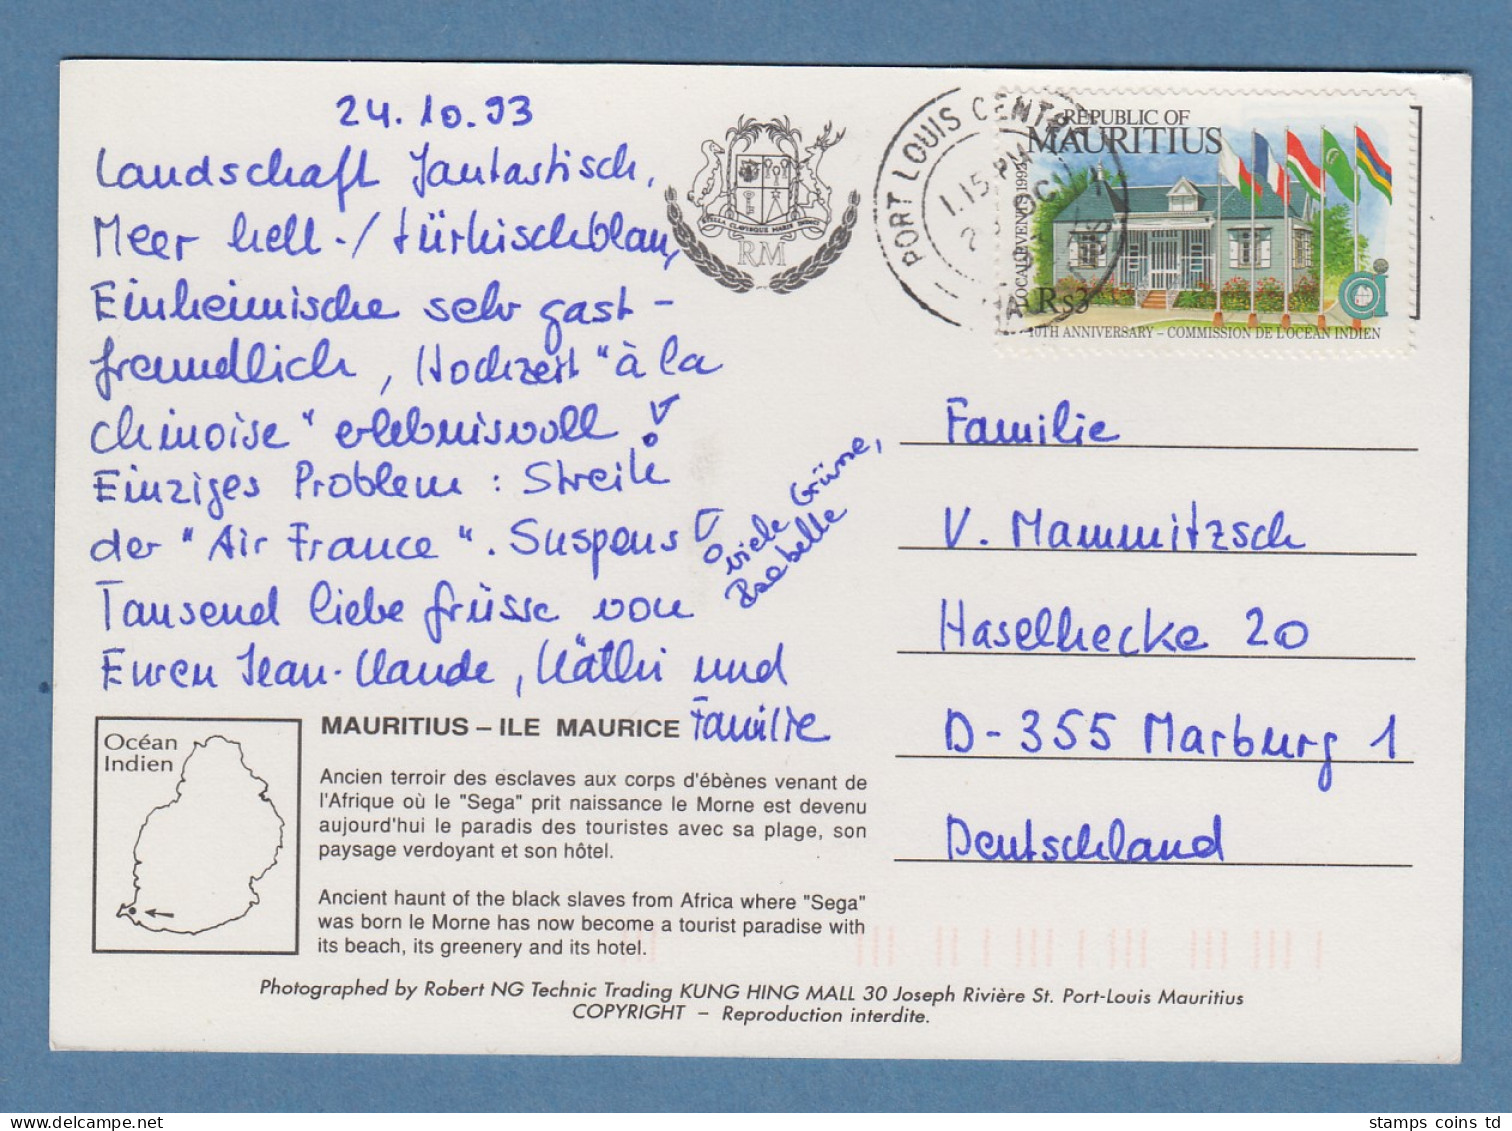 24.10.93
Landschaft fantastisch,
Meer hell-/türkischblau,
Einheimische sehr gast-
freundlich, Hochzeit "à la
chinoise" erlebnisvoll!
Einziges Problem: Streik
der "Air France". Suspens!
Tausend liebe Grüsse von
Euren Jean-Claude, Käthi und
Familie
viele Grüsse,
Isabelle
RM
PORT LOUIS CENT
1.15 PM
REPUBLIC OF
MAURITIUS
LOCAL EVENTS 1992
Rs3
10TH ANNIVERSARY – COMMISSION DE L'OCÉAN INDIEN
Familie
V. Mammitzsch
Haselhecke 20
D-355 Marburg 1
Deutschland
Océan
Indien
MAURITIUS – ILE MAURICE
Ancien terroir des esclaves aux corps d'ébènes venant de
l'Afrique où le "Sega" prit naissance le Morne est devenu
aujourd'hui le paradis des touristes avec sa plage, son
paysage verdoyant et son hôtel.
Ancient haunt of the black slaves from Africa where "Sega"
was born le Morne has now become a tourist paradise with
its beach, its greenery and its hotel.
Photographed by Robert NG Technic Trading KUNG HING MALL 30 Joseph Rivière St. Port-Louis Mauritius
COPYRIGHT – Reproduction interdite.
stamps coins td